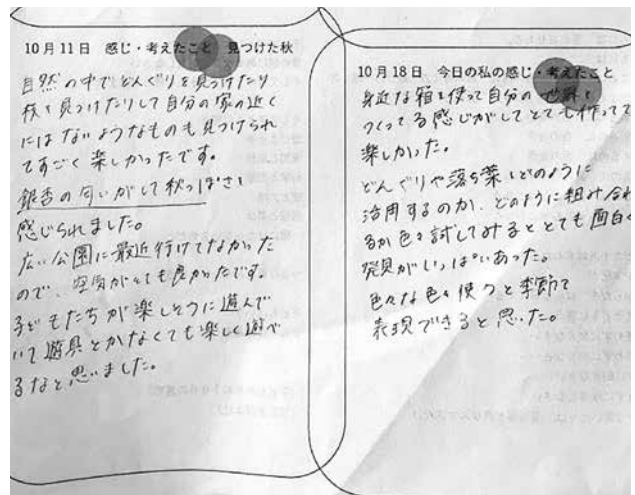 10月11日 感じ・考えたこと 見つけた秋
自然の中でどんぐりを見つけたり
枝を見つけたりして自分の家の近く
にはないようなものも見つけられ
てすごく楽しかったです。
銀杏の匂いがして秋っぽさも
感じられました。
広い公園に最近行けてなかった
ので、空気がとても良かったです。
子どもたちが楽しそうに遊んで
いて遊具とかなくても楽しく遊べ
るなと思いました。
10月18日 今日の私の感じ・考えたこと
身近な箱を使って自分の世界を
つくってる感じがしてとても作ってて
楽しかった。
どんぐりや落ち葉をどのように
活用するのか、どのように組み合わ
るか色々試してみるととても面白く
発見がいっぱいあった。
色々な色を使うと季節て
表現できると思った。